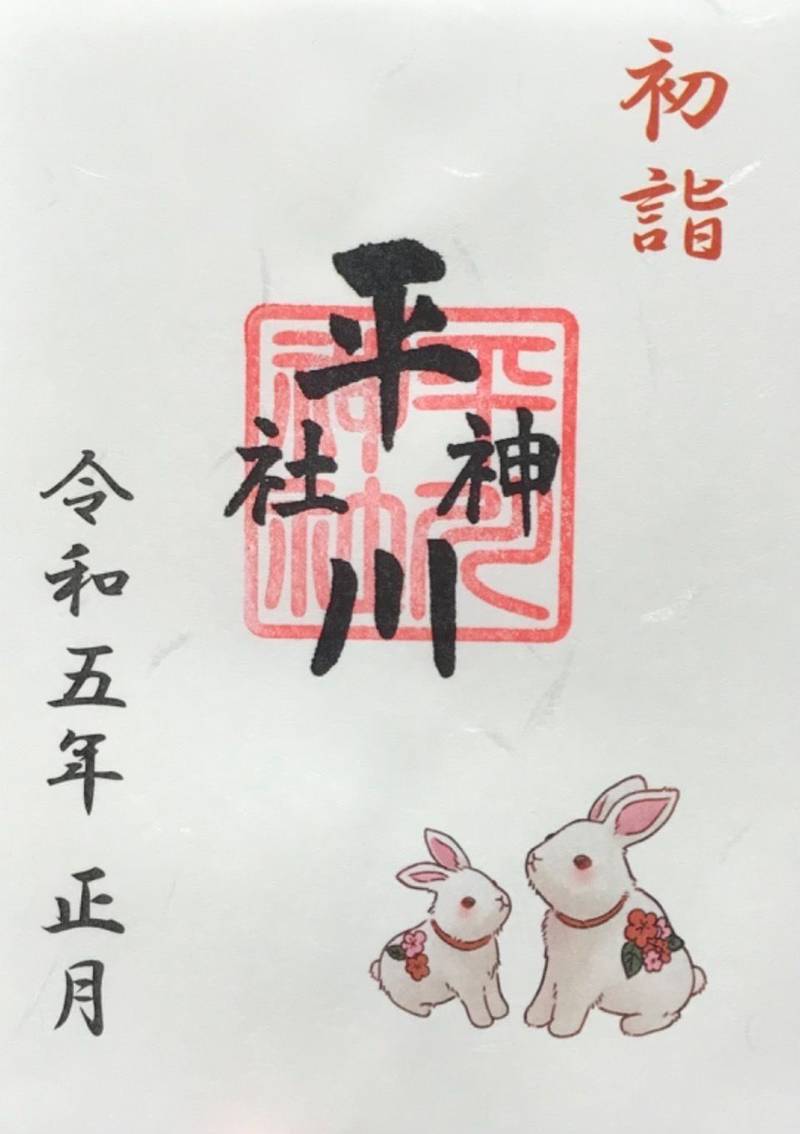 初詣
平川
神社
平川
神社
令和五年 正月